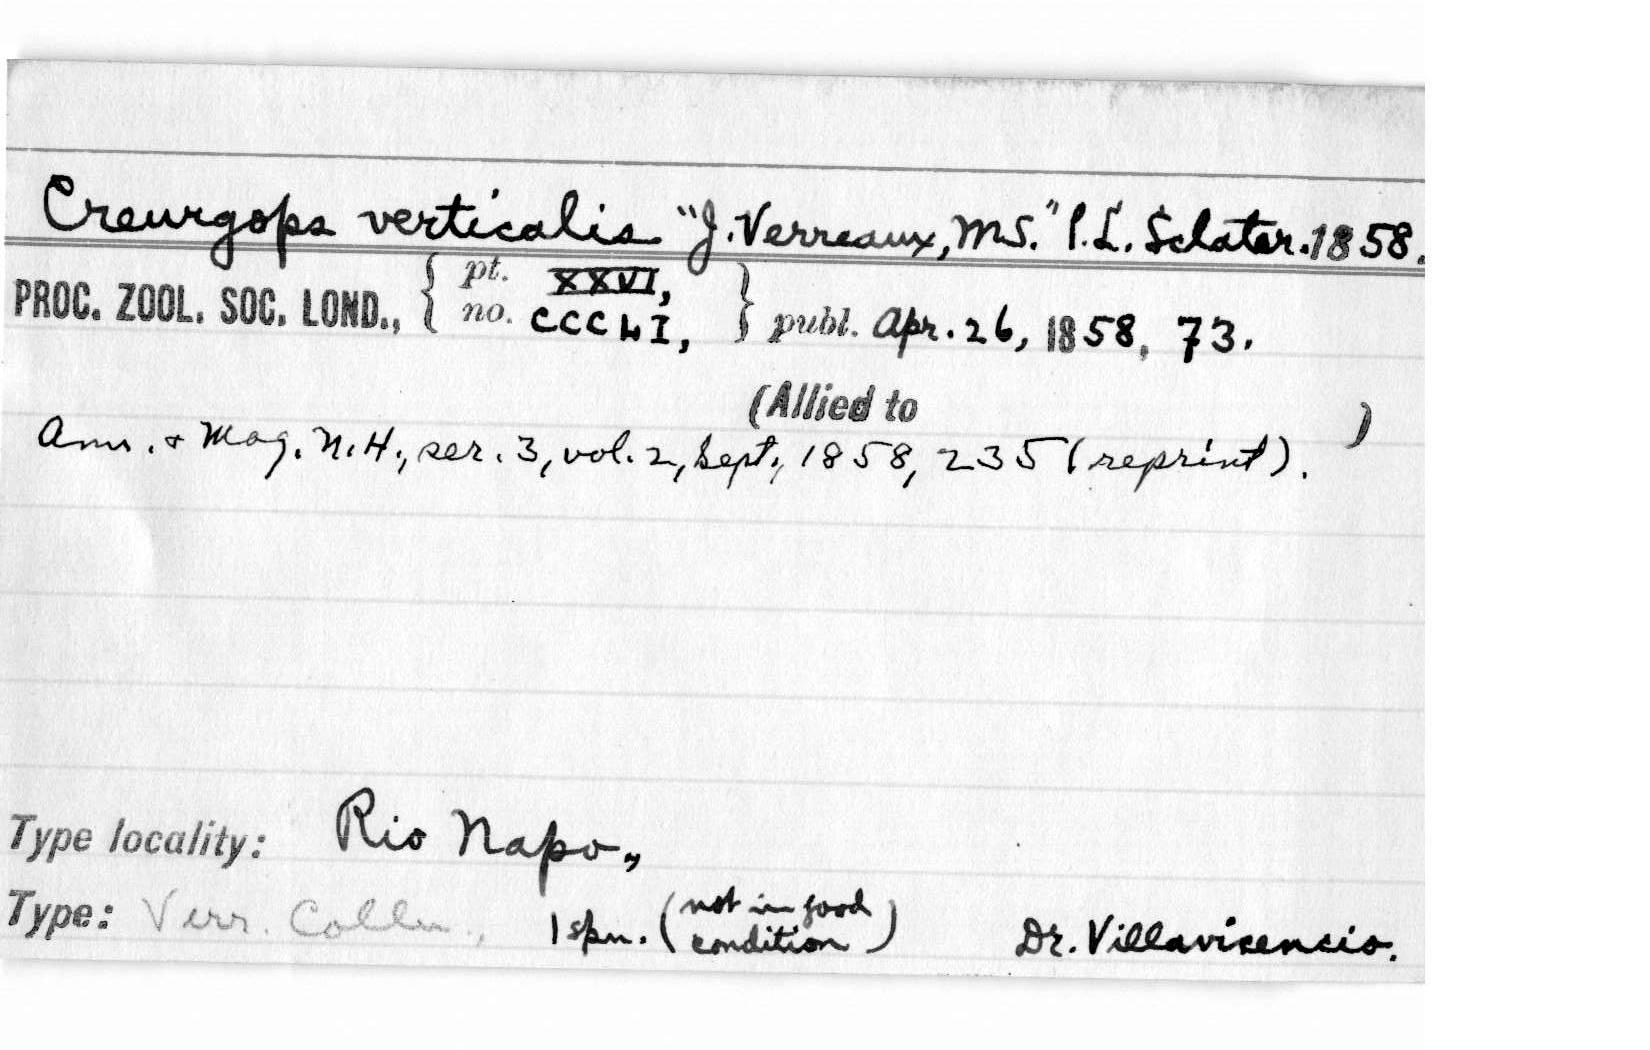 Creurgops verticalis "J. Verreaux, MS." P.L. Sclater. 1858.
PROC. ZOOL. SOC. LOND., { pt. XXVI, no. CCCLI, } publ. Apr. 26, 1858, 73.
(Allied to )
Ann. & Mag. N.H., ser. 3, vol. 2, Sept., 1858, 235 (reprint).
Type locality: Rio Napo,
Type: Verr. Colln., 1 spn. (not in good condition) Dr. Villavicencio.